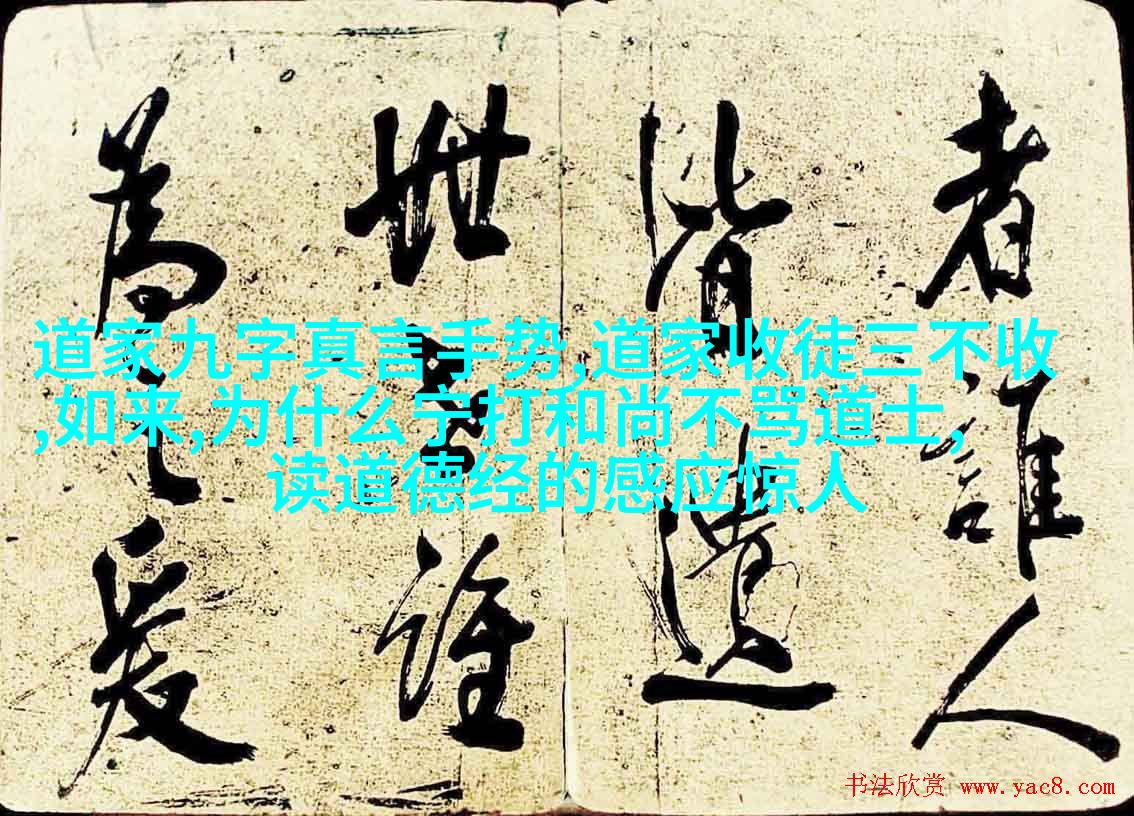 者誰人
皆遺
世誰
為之爰
道家九字真言手势,道家收徒三不收
,如来,为什么宁打和尚不骂道士,
读道德经的感应惊人
书法欣赏 www.yac8.com